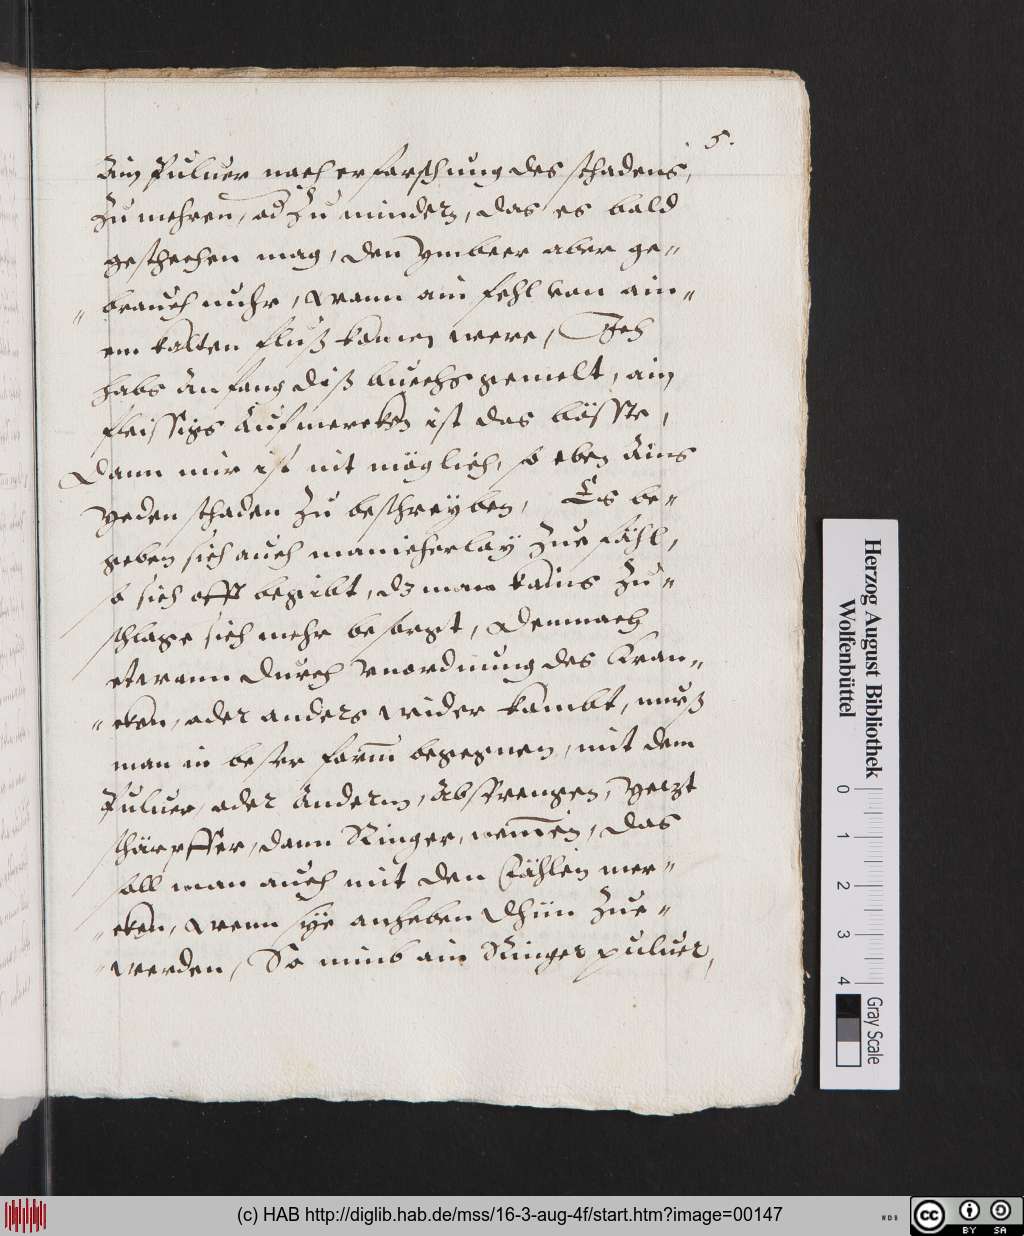 5.
Ain Puluer nach erforschung des schadens,
Zu mehren, od Zu mindern, das es bald
geschechen mag, den Ymbeer aber ge-
brauch nuhr, Wann ain fehl von ain-
em kalten fluß komen were, Ich
habs Anfang diß buechs gemelt, ain
fleissigs Aufmercken ist das böste,
Dann mir ist nit möglich, so eben Ains
yeden schaden Zu beschreyben, Es be-
geben sich auch manicherlay Zue fähl,
so sich offt begibt, dz man kains Zu-
schlags sich mehr besorgt, Vnd dennoch
etwann durch Vnordnung des Kran-
cken, oder anders wider kombt, muß
man in bester form begegnen, mit dem
Puluer, oder Andern, Abstrengen, yetzt
schärpffer, dann Ringer, nemen, das
soll man auch mit den Fählen mer-
cken, wenn sye anheben Dhün Zue
werden, So nimb ain Ringer puluer,
Herzog August Bibliothek
Wolfenbüttel
0 1 2 3 4
Gray Scale
(c) HAB http://diglib.hab.de/mss/16-3-aug-4f/start.htm?image=00147
WDB
cc BY SA